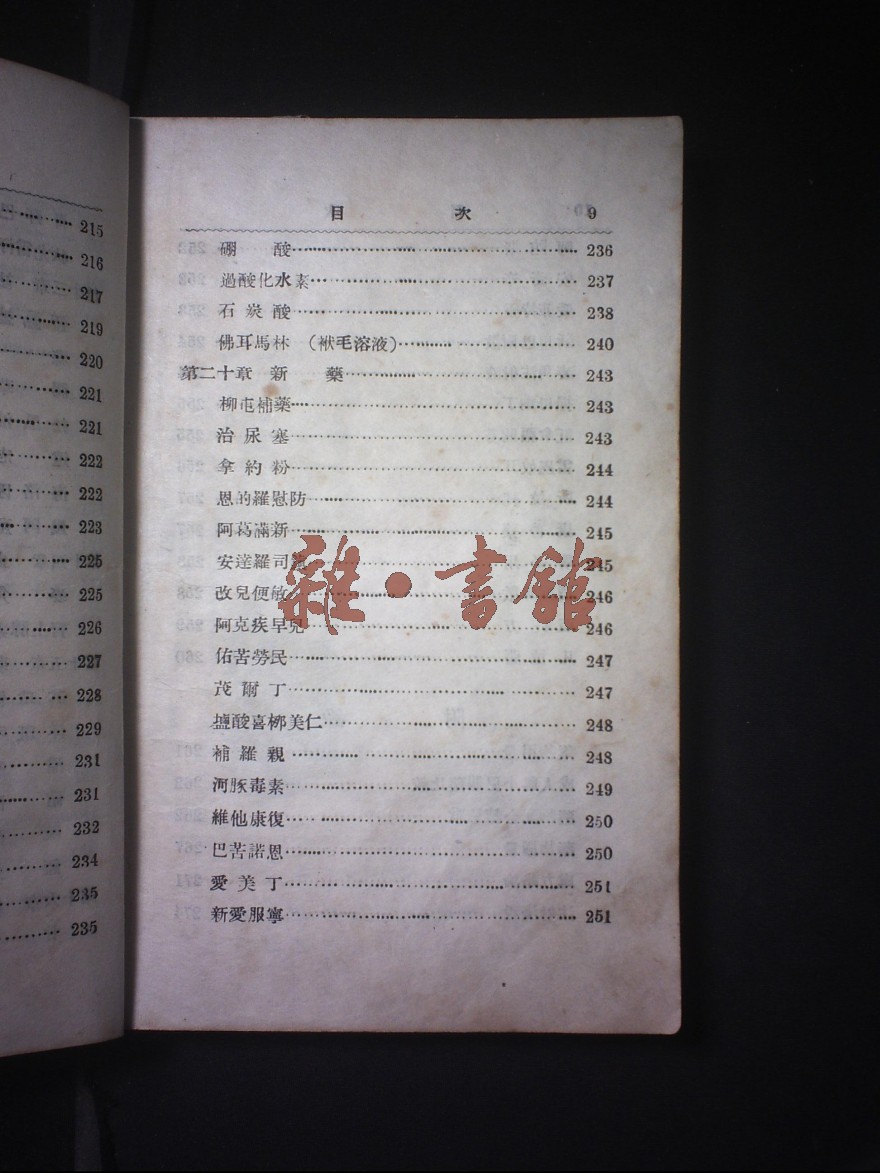 215
216
217
219
220
221
221
222
222
223
225
225
226
227
228
229
231
231
232
234
235
235
目 次 9
硼 酸 236
過酸化水素 237
石炭酸 238
佛耳馬林 (袱毛溶液) 240
第二十章 新 藥 243
柳屯補藥 243
治尿塞 243
拿約粉 244
恩的羅慰防 244
阿葛滿新 245
安達羅司 245
改兒便敏 246
阿克疾早兒 246
佑苦勞民 247
茂爾丁 247
鹽酸喜梛美仁 248
補羅親 248
河豚毒素 249
維他康復 250
巴苦諾恩 250
愛美丁 251
新愛服寧 251
雜·書館